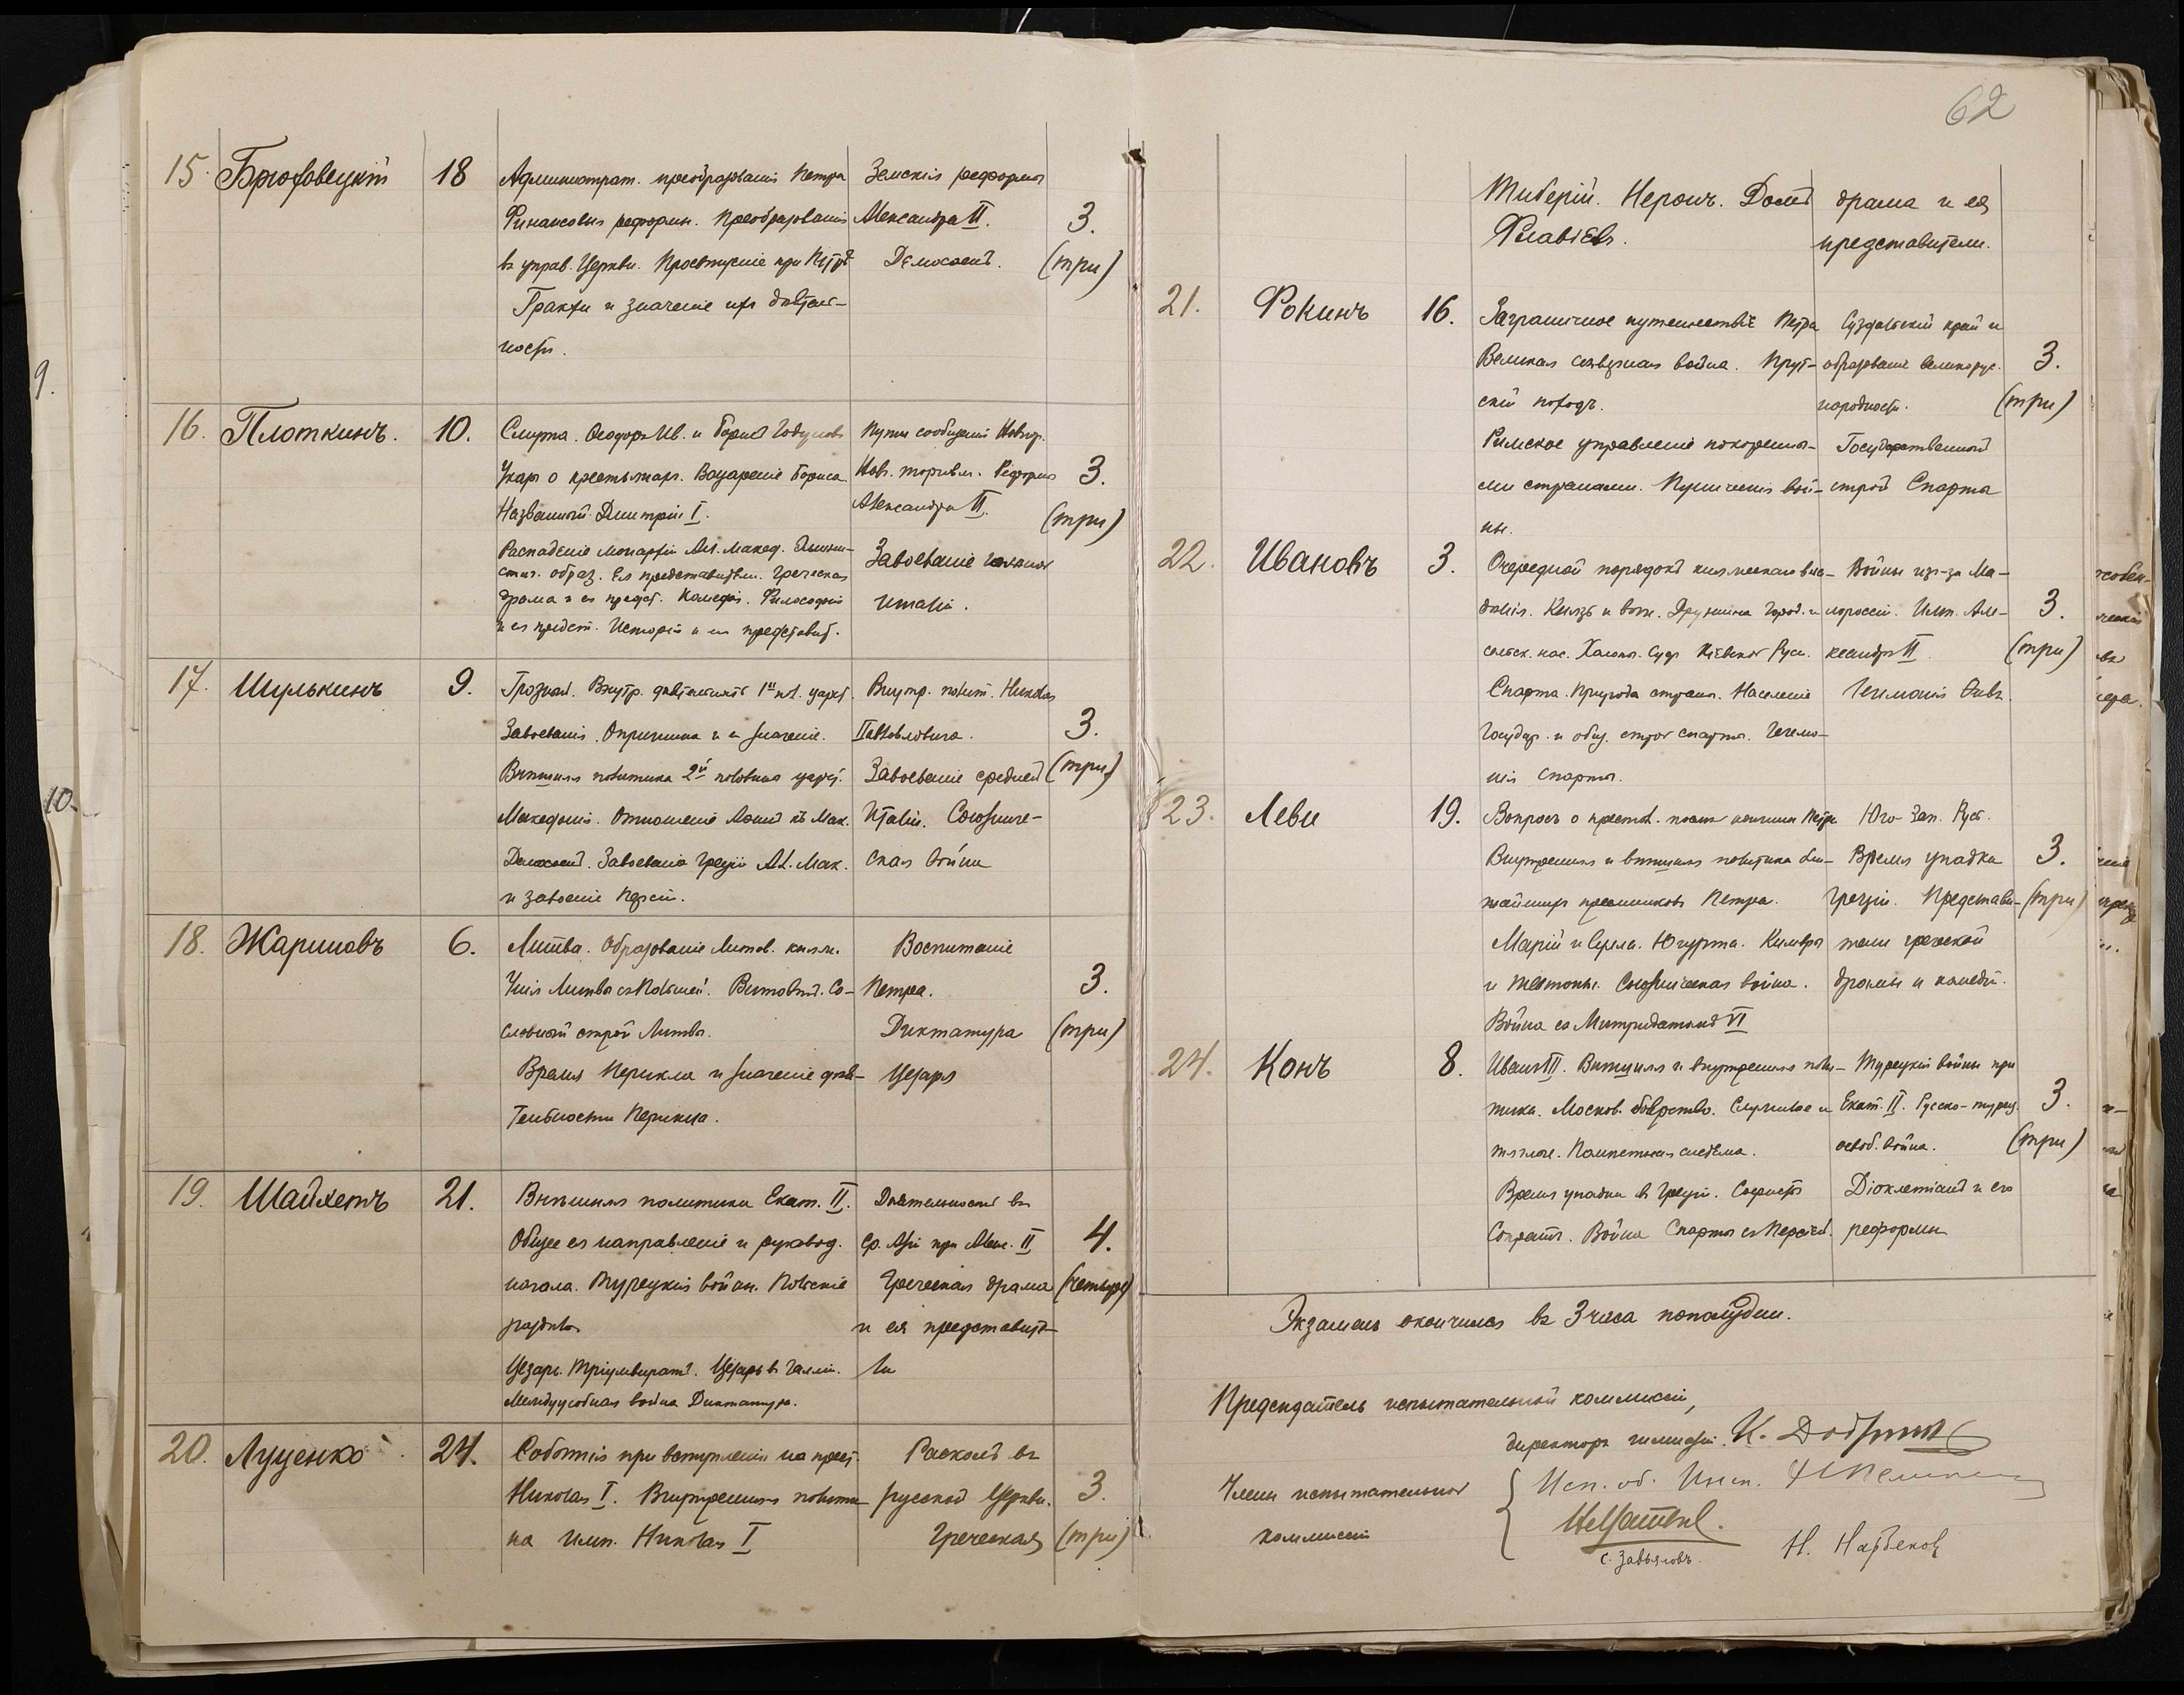 15. Брюховецкій 18 Администрат. преобразованія Петра Земскія реформы
Финансовыя реформы. Преобразованія Александра II. 3.
въ управ. Церкви. Просвѣщеніе при Петрѣ Демосѳенъ. (три)
Гракхи и значеніе ихъ дѣятель-
ности.
16. Плоткинъ. 10. Смута. Ѳеодоръ Ив. и Борисъ Годуновъ Пути сообщенія Новгор.
Указъ о крестьянахъ. Воцареніе Бориса. Нов. торговли. Реформы 3.
Названный Дмитрій I. Александра II. (три)
Распаденіе монархіи Ал. Макед. Эллини-
стич. образ. Ея представители. Греческая Завоеваніе южной
драма и ея предст. Комедія. Философія Италіи.
и ея предст. Исторія и ея представит.
17. Шулькинъ 9. Грозный. Внутр. дѣятельность 1й пол. царст. Внутр. полит. Николая
Завоеванія. Опричнина и ея значеніе. Павловича. 3.
Внѣшняя политика 2й половины царст. Завоеваніе средней (три)
Македонія. Отношеніе Аѳинъ къ Мак. Италіи. Союзниче-
Демосѳенъ. Завоеваніе Греціи Ал. Мак. ская война
и завоеніе Персіи.
18. Жариновъ 6. Литва. Образованіе Литов. княж. Воспитаніе
Унія Литвы съ Польшей. Витовтъ. Со- Петра. 3.
словный строй Литвы. Диктатура (три)
Время Перикла и значеніе дѣя- Цезаря
тельности Перикла.
19. Шайхетъ 21. Внѣшняя политика Екат. II. Дѣятельность въ
Общее ея направленіе и руковод. Ср. Азіи при Алек. II 4.
начала. Турецкія войны. Польскіе Греческая драма (четыре)
раздѣлы и ея представите-
Цезарь. Тріумвиратъ. Цезарь въ Галліи. ли
Междуусобная война Диктатура.
20. Луценко 24. Событія при вступленіи на прест. Расколъ въ
Николая I. Внутренняя полити- русской Церкви. 3.
ка Имп. Николая I Греческая (три)
62
Тиберій. Неронъ. Домъ драма и ея
Флавіевъ. представители.
21. Фокинъ 16. Заграничное путешествіе Петра Суздальскій край и
Великая сѣверная война. Прут- образованіе великорус. 3.
скій походъ. народности. (три)
Римское управленіе покоренны- Государственный
ми странами. Пуническія вой- строй Спарты
ны.
22. Ивановъ 3. Очередной порядокъ княжескаго вла- Войны изъ-за Ма-
дѣнія. Князь и вѣче. Дружина Город. и лороссіи. Имп. Але- 3.
сельск. нас. Холопы. Судъ Кіевской Руси. ксандръ II (три)
Спарта. Природа страны. Населеніе Гегемонія Ѳивъ.
Государ. и общ. строй Спарты. Гегемо-
нія Спарты.
23. Леви 19. Вопросъ о престол. послѣ кончины Петра Юго-Зап. Русь.
Внутренняя и внѣшняя политика бли- Время упадка 3.
жайшихъ преемниковъ Петра. Греціи. Представи- (три)
Марій и Сулла. Югурта. Кимвры тели греческой
и тевтоны. Союзническая война. драмы и комедіи.
Война съ Митридатомъ VI
24. Конъ 8. Иванъ III. Внѣшняя и внутренняя поли- Турецкія войны при
тика. Москов. боярство. Служилое и Екат. II. Русско-турец. 3.
тяглое. Помѣстная система. освоб. война. (три)
Время упадка въ Греціи. Софисты Діоклетіанъ и его
Сократъ. Война Спарты съ Персіей. реформы
Экзаменъ окончился въ 3 часа пополудни.
Предсѣдатель испытательной коммиссіи,
директоръ гимназіи. И.
Члены испытательной Исп. об. Инсп.
коммиссіи
С. Завьяловъ.
Н. Нарбековъ
9.
10.